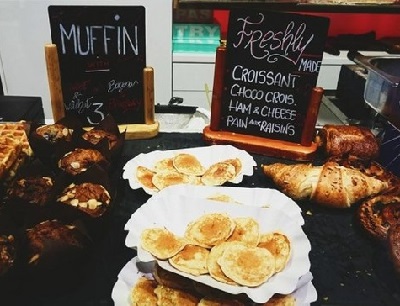 MUFFiN
3
PAS
TRY
Freshly
MADE
CROISSANT
CHOCO CROIS.
HAM & CHEESE
PAIN aux RAISINS